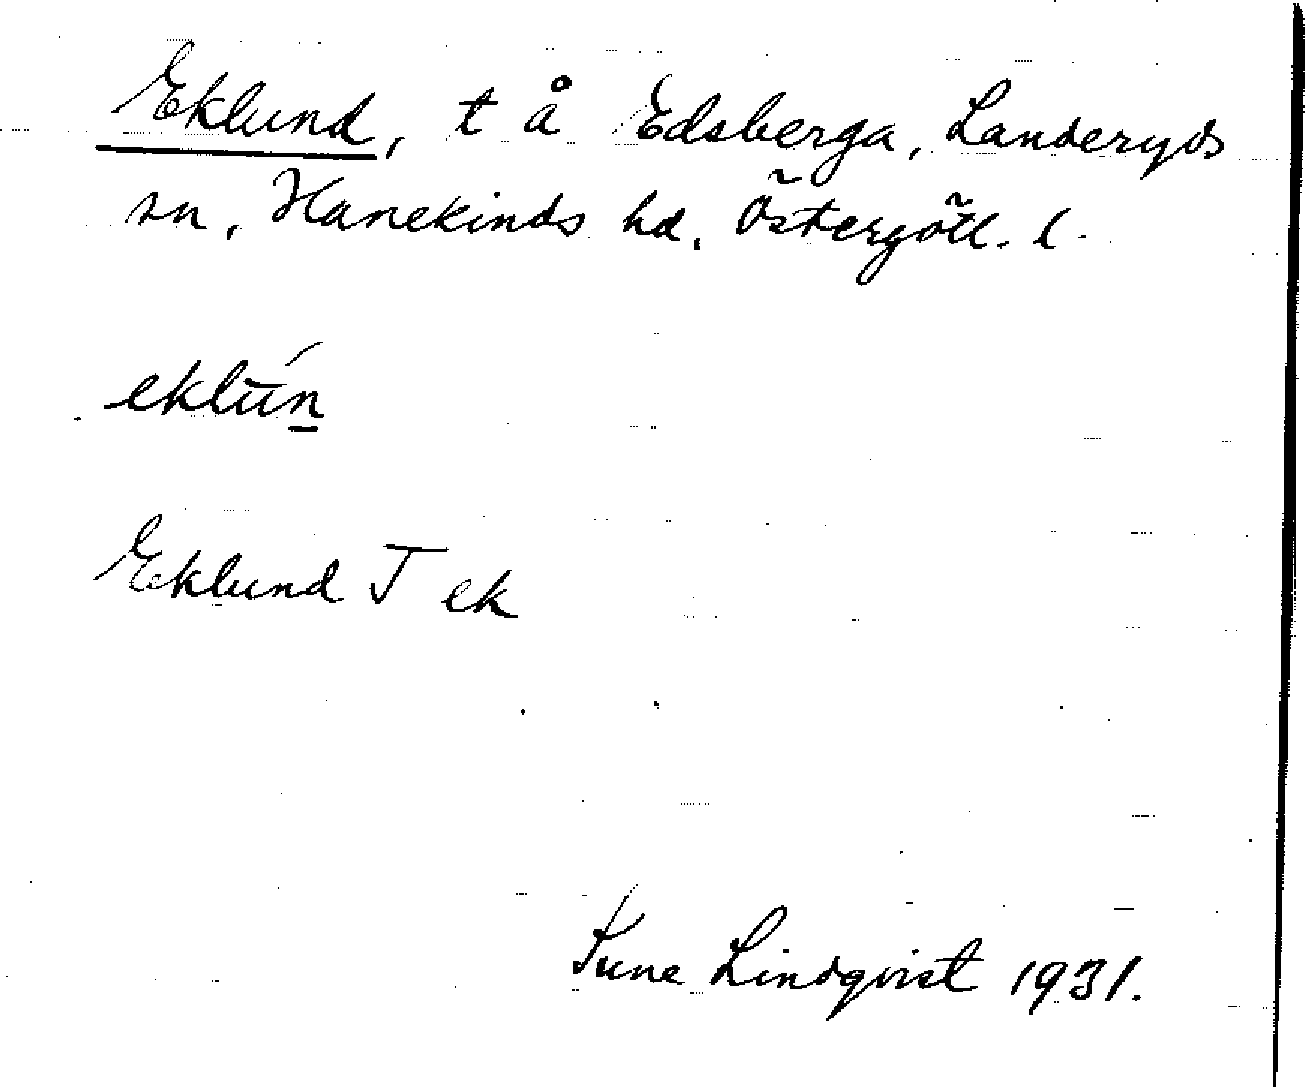 Eklund, t å Edsberga, Landeryds
sn, Hanekinds hd, Östergötl. l.
eklun̲
Eklund T ek
Sune Lindqvist 1931.